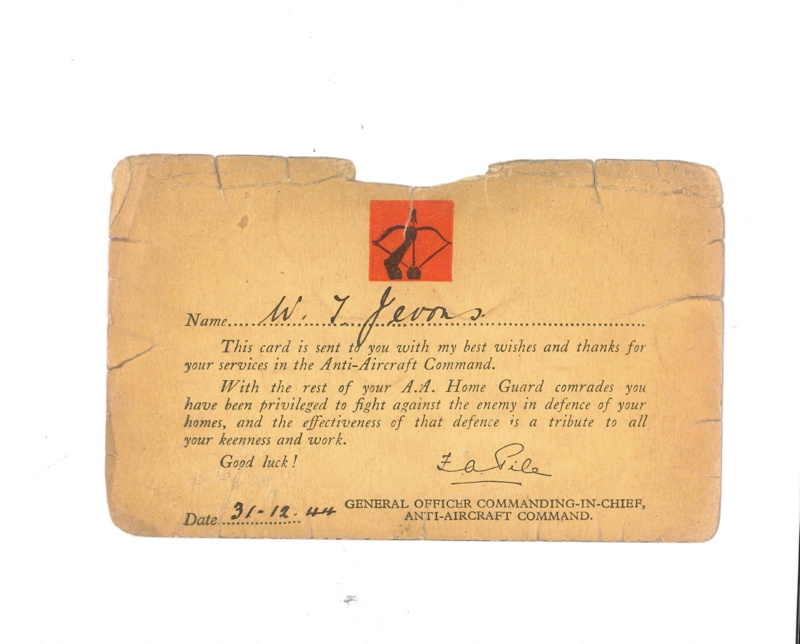 Name W. T. Jevons
This card is sent to you with my best wishes and thanks for
your services in the Anti-Aircraft Command.
With the rest of your A.A. Home Guard comrades you
have been privileged to fight against the enemy in defence of your
homes, and the effectiveness of that defence is a tribute to all
your keenness and work.
Good luck!
F A Pile
GENERAL OFFICER COMMANDING-IN-CHIEF,
ANTI-AIRCRAFT COMMAND.
Date 31-12-44